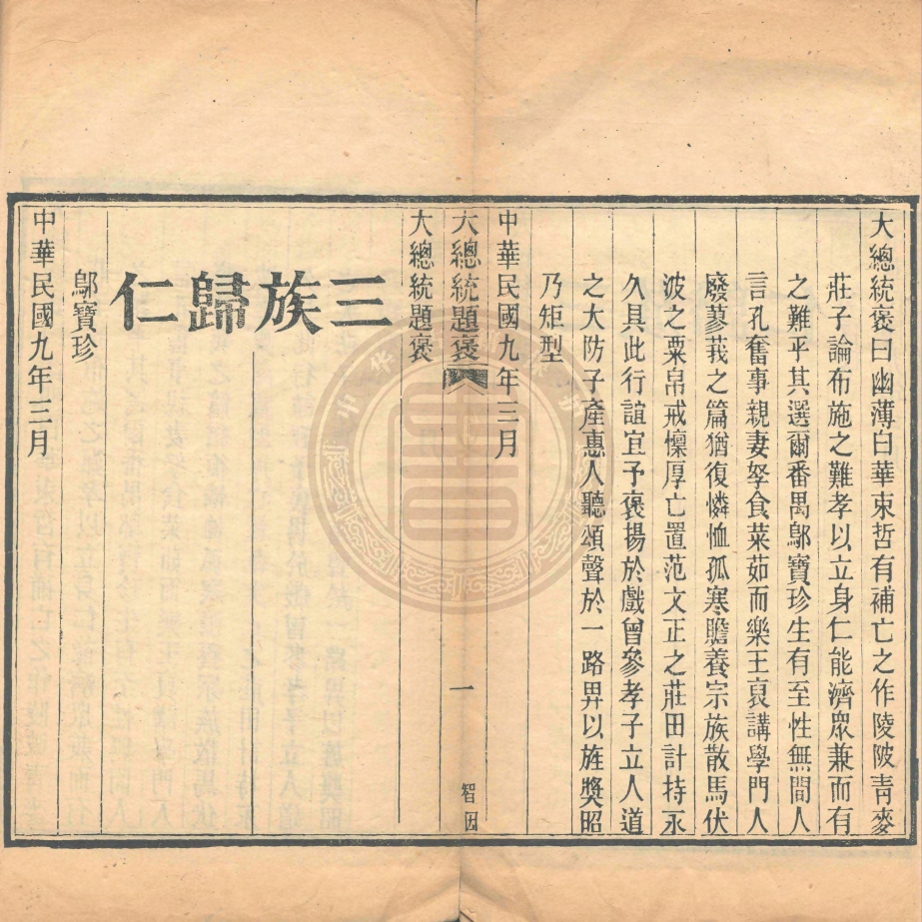 大總統褒曰幽薄白華束哲有補亡之作陵陂青麥
莊子論布施之難孝以立身仁能濟眾兼而有
之難乎其選爾番禺鄔寶珍生有至性無間人
言孔奮事親妻孥食菜茹而樂王裒講學門人
廢蓼莪之篇猶復憐恤孤寒贍養宗族散馬伏
波之粟帛戒懍厚亡置范文正之莊田計持永
久具此行誼宜予褒揚於戲曾參孝子立人道
之大防子產惠人聽頌聲於一路畀以旌獎昭
乃矩型
中華民國九年三月
大總統題褒
一
智因
大總統題褒
三族歸仁
鄔寶珍
中華民國九年三月